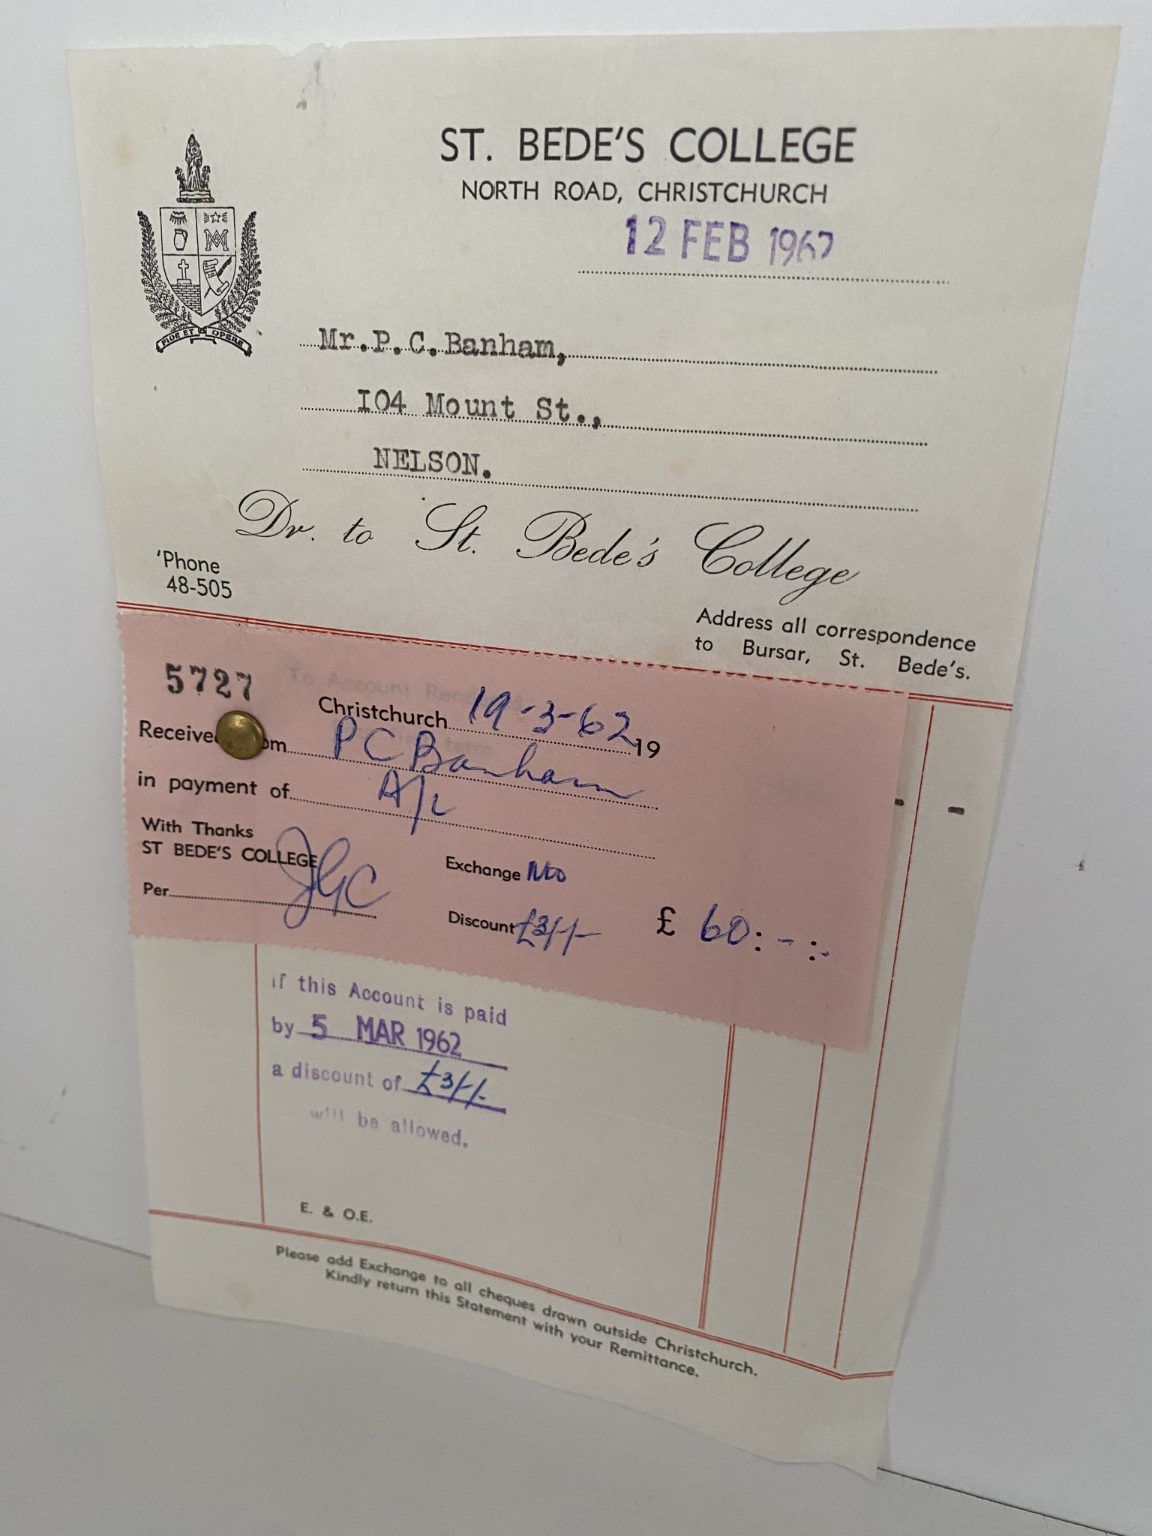 ST. BEDE'S COLLEGE
NORTH ROAD, CHRISTCHURCH
12 FEB 1962
FIDE ET OPERE
Mr.P.C.Banham,
I04 Mount St.,
NELSON.
Dr. to St. Bede's College
'Phone
48-505
Address all correspondence
to Bursar, St. Bede's.
5727
To Account
Christchurch 19-3-62 19
Received from P C Banham
in payment of A/c
With Thanks
ST BEDE'S COLLEGE
Per JGC
Exchange
Discount £3/-/-
£ 60:-:-
if this Account is paid
by 5 MAR 1962
a discount of £3/-/-
will be allowed.
E. & O.E.
Please add Exchange to all cheques drawn outside Christchurch.
Kindly return this Statement with your Remittance.